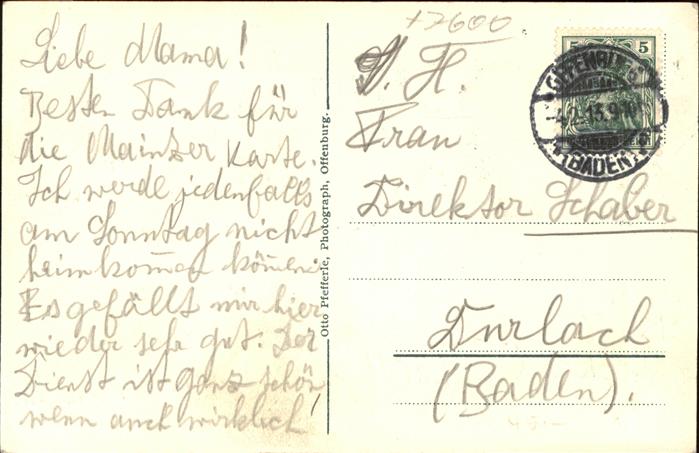 Liebe Mama!
Besten Dank für
die Mainzer Karte.
Ich werde jedenfalls
am Sonntag nicht
heimkom̅en kön̅en.
Es gefällt mir hier
wieder sehr gut. Der
Dienst ist ganz schön
wenn auch wirklich!
Otto Pfefferle, Photograph, Offenburg.
+7600
S. H.
Frau
Direktor Schaber
Durlach
(Baden).
5 5
OFFENBURG
-4.2.13.9-10
(BADEN)